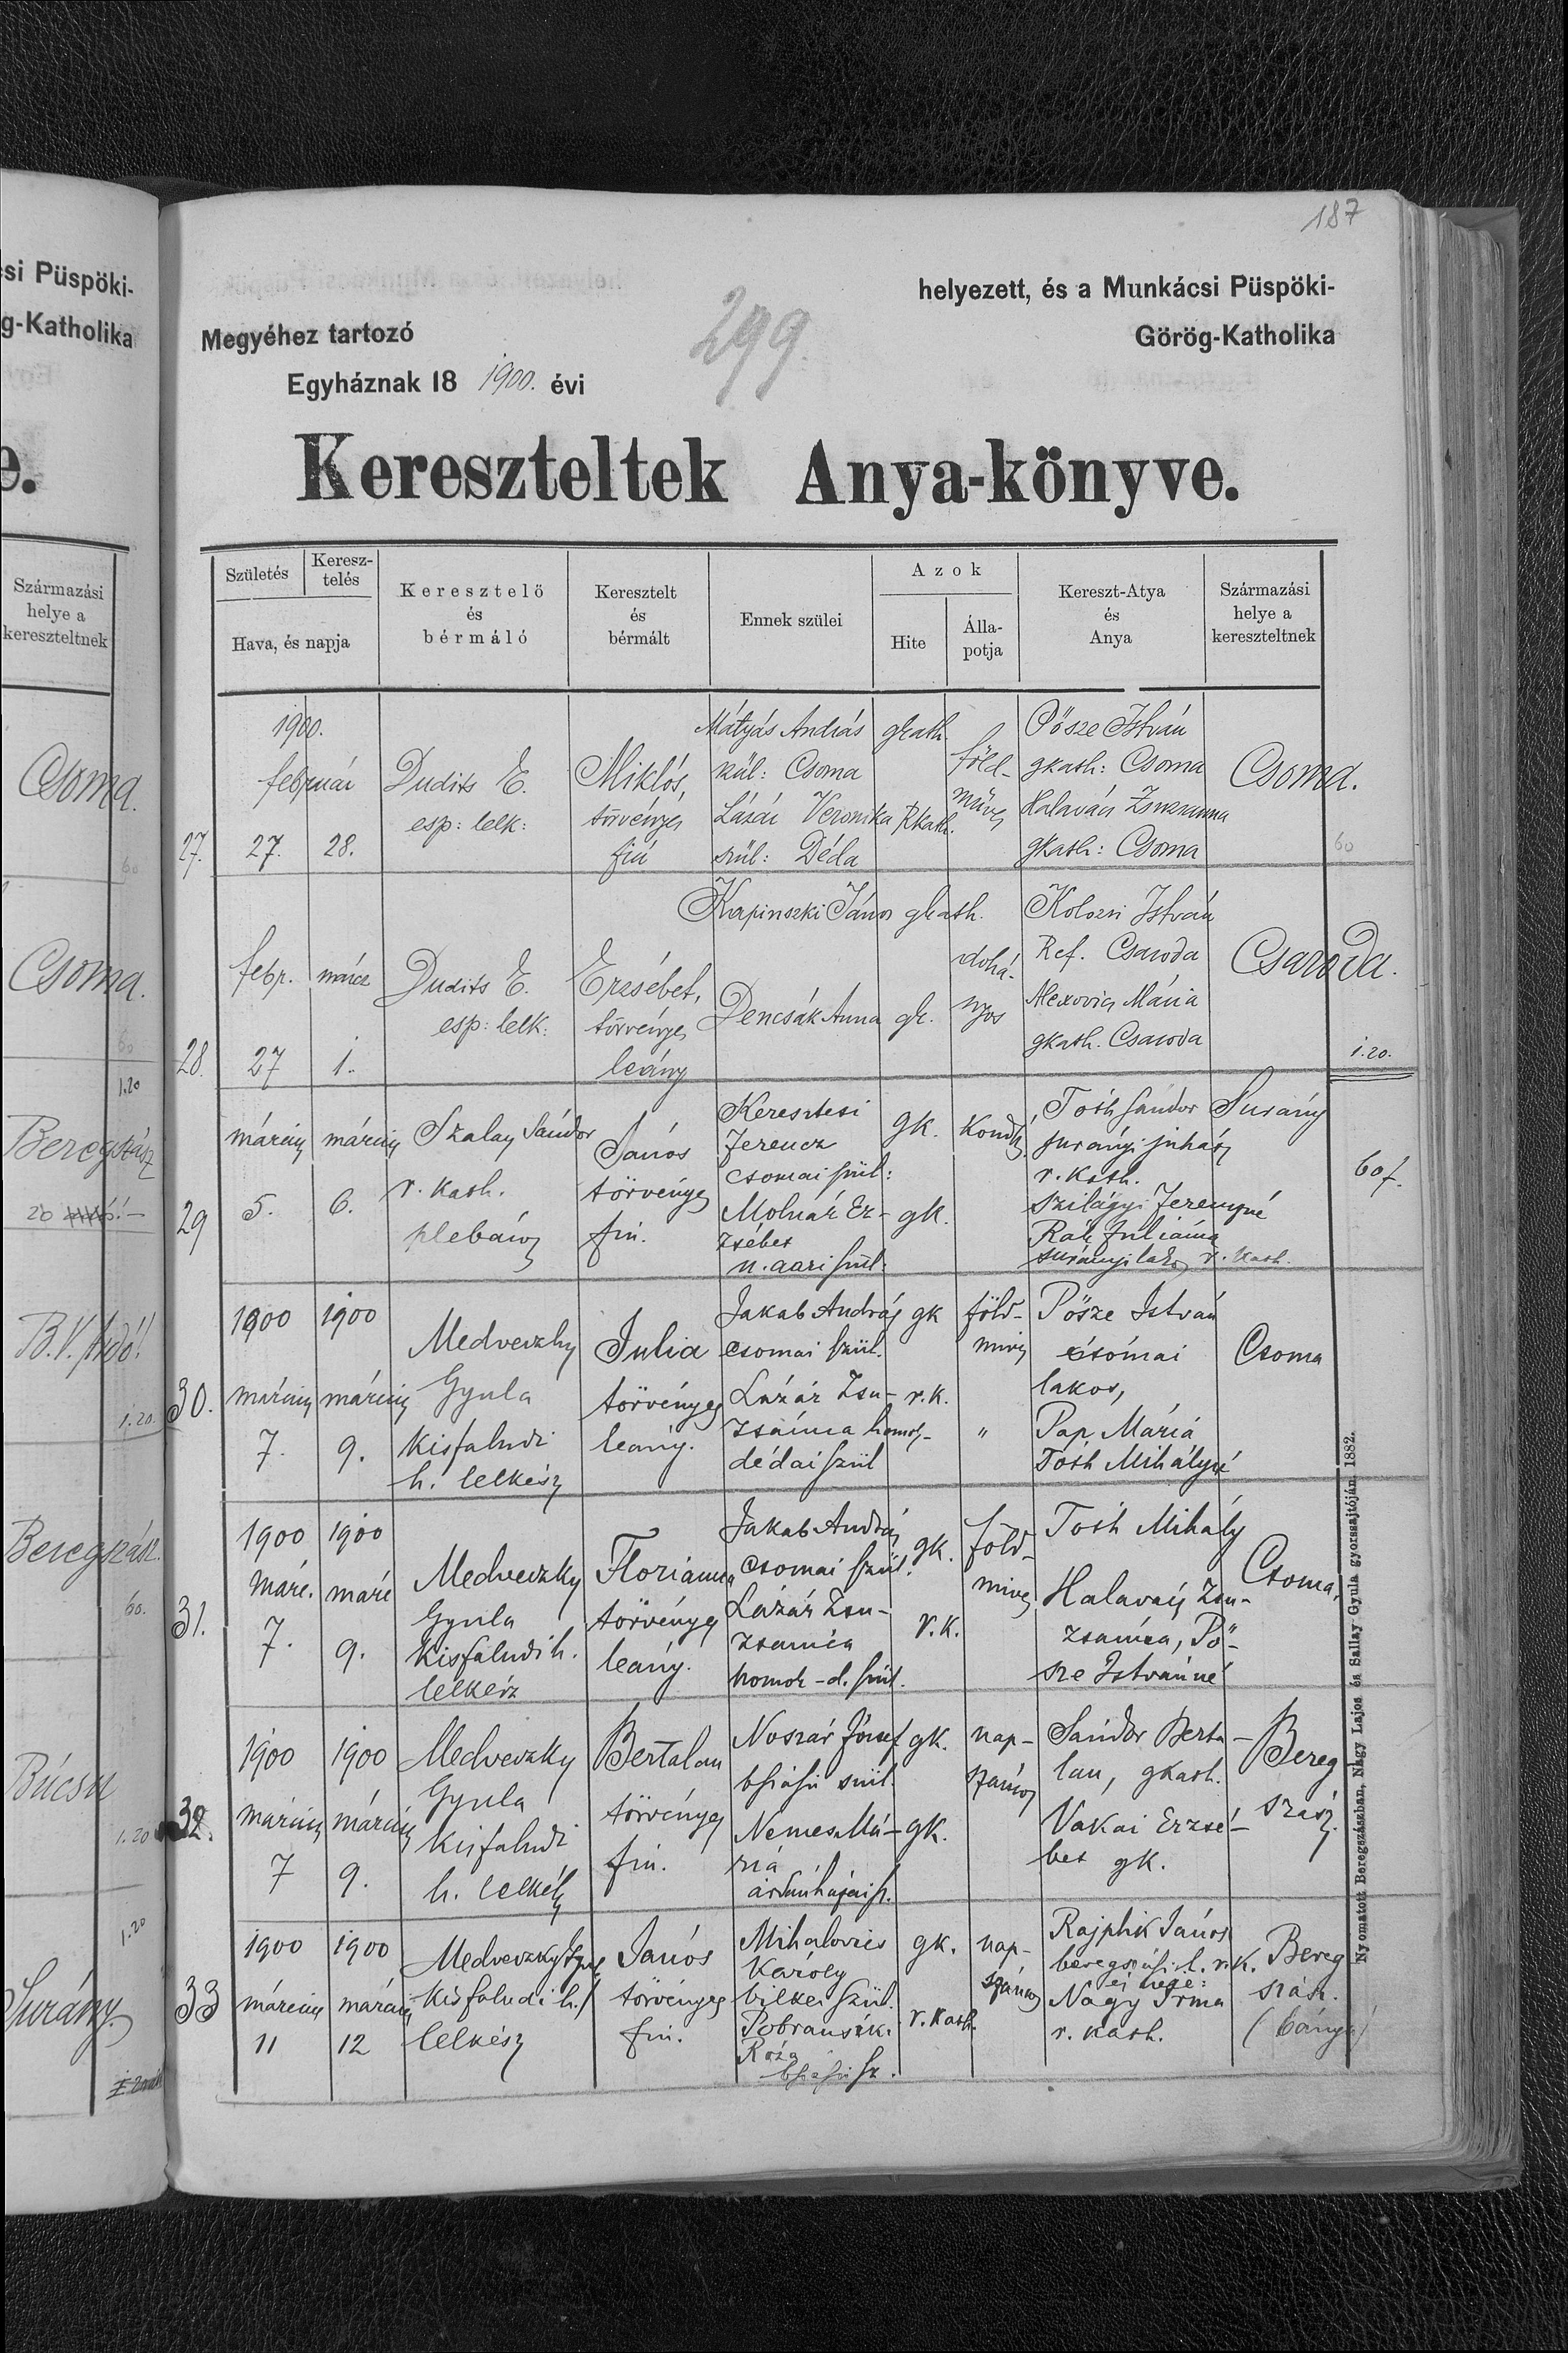 187
si Püspöki-
g-Katholika
e.
Származási
helye a
kereszteltnek
Csoma.
60
Csoma.
60
1.20
Beregszász
20
B.V. Ardó!
1.20.
Beregszász.
60.
Búcsu
1.20
1.20
Surány.
helyezett, és a Munkácsi Püspöki-
Megyéhez tartozó
299
Görög-Katholika
Egyháznak 18 1900. évi
Kereszteltek Anya-könyve.
Születés
Keresz-
telés
Hava, és napja
Keresztelő
és
bérmáló
Keresztelt
és
bérmált
Ennek szülei
Azok
Hite
Álla-
potja
Kereszt-Atya
és
Anya
Származási
helye a
kereszteltnek
27.
1900.
február
27. 28.
Dudits E.
esp: lelk:
Miklós,
törvényes
fiú
Mátyás András
szül: Csoma
Lázár Veronika
szül: Déda
gkath.
Rkath.
föld-
műves
Pősze István
gkath: Csoma
Halavács Zsuzsanna
gkath: Csoma
Csoma.
60
28.
febr. márcz
27 1.
Dudits E.
esp: lelk:
Erzsébet,
törvényes
leány
Karpinszki János
Dencsák Anna
gkath.
gk.
dohá-
nyos
Kolozsi István
Ref. Csaroda
Alexovics Mária
gkath. Csaroda
Csaroda.
1.20.
29
márczius márczius
5. 6.
Szalay Sándor
r. kath.
plebános
János
törvényes
fiú.
Keresztesi
Ferencz
csomai szül:
Molnár Er-
zsébet
u. aari szül.
gk.
gk.
Kondás
Tóth Sándor
surányi juhász
r. kath.
Szilágyi Ferenczné
Rátz Juliánna
surányi lakos r. kath.
Surány
60 f.
30.
1900 1900
márczius márczius
7. 9.
Medveczky
Gyula
Kisfaludi
h. lelkész
Julia
törvényes
leány.
Jakab András
csomai szül.
Lázár Zsu-
zsánna homok-
dédai szül
gk
r.k.
föld-
mives
"
Pősze István
csómai
lakos,
Pap Mária
Tóth Mihályné
Csoma
31.
1900 1900
márc. márc
7. 9.
Medveczky
Gyula
Kisfaludi h.
lelkész
Florianna
törvényes
leány.
Jakab András
csomai szül.
Lázár Zsu-
zsanna
homok-d. szül.
gk.
r.k.
föld-
mives
Tóth Mihály
Halavács Zsu-
zsánna, Pő-
sze Istvánné
Csoma,
32.
1900 1900
márczius márczius
7 9.
Medveczky
Gyula
Kisfaludi
h. lelkész
Bertalan
törvényes
fiú.
Noszár József
bszászi szül.
Nemes Má-
riá
ardánházai sz.
gk.
gk.
nap-
számos
Sándor Berta-
lan, gkath.
Vakai Erzsé-
bet gk.
Bereg
szász.
33
1900 1900
márczius márczius
11 12
Medveczky Gyula
Kisfaludi h.
lelkész
János
törvényes
fiú.
Mihalovics
Károly
bilkei szül.
Pobranszk.
Róza
bszászi sz.
gk.
r. kath.
nap-
számos
Rajphik János
beregszászi l. r. k.
és neje:
Nagy Irma
r. kath.
Bereg
szász.
(bánya)
Nyomatott Beregszászban, Nagy Lajos és Sallay Gyula gyorssajtóján. 1882.